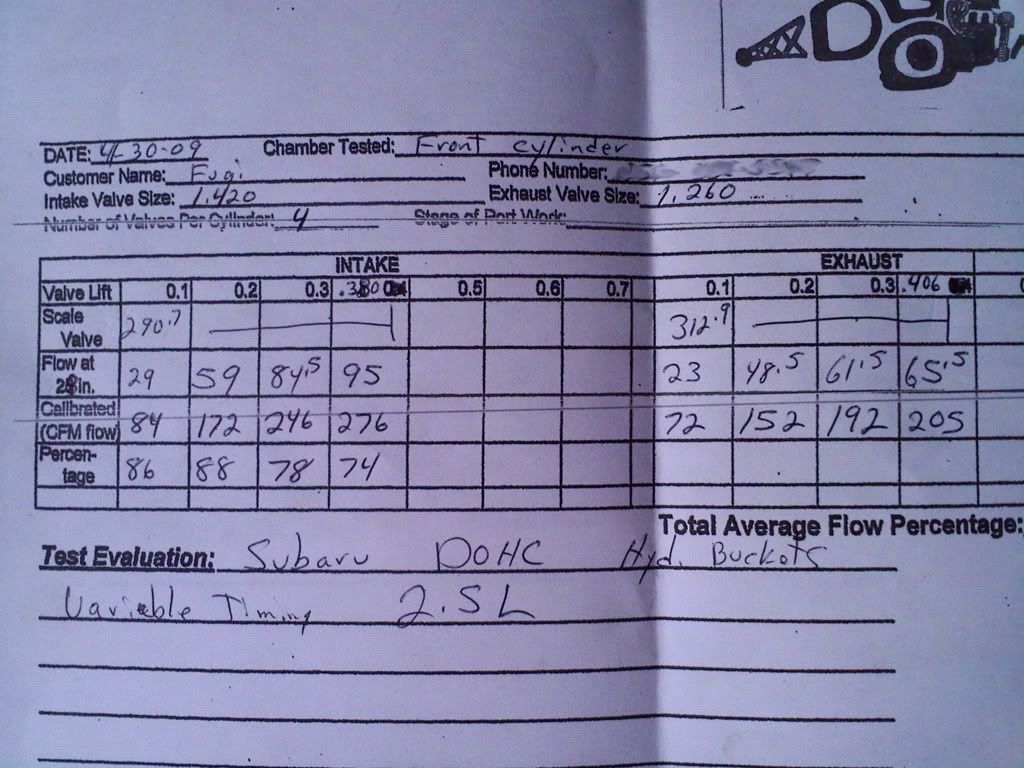 DATE: 4-30-09 Chamber Tested: Front cylinder
Customer Name: Fugi Phone Number:
Intake Valve Size: 1.420 Exhaust Valve Size: 1.260
Number of Valves Per Cylinder: 4 Stage of Port Work:
INTAKE EXHAUST
Valve Lift 0.1 0.2 0.3 .380 0.5 0.6 0.7 0.1 0.2 0.3 .406
Scale
Valve 290.7 312.9
Flow at
28in. 29 59 84.5 95 23 48.5 61.5 65.5
Calibrated
(CFM flow) 84 172 246 276 72 152 192 205
Percen-
tage 86 88 78 74
Total Average Flow Percentage:
Test Evaluation: Subaru DOHC Hyd. Buckets
Variable Timing 2.5L